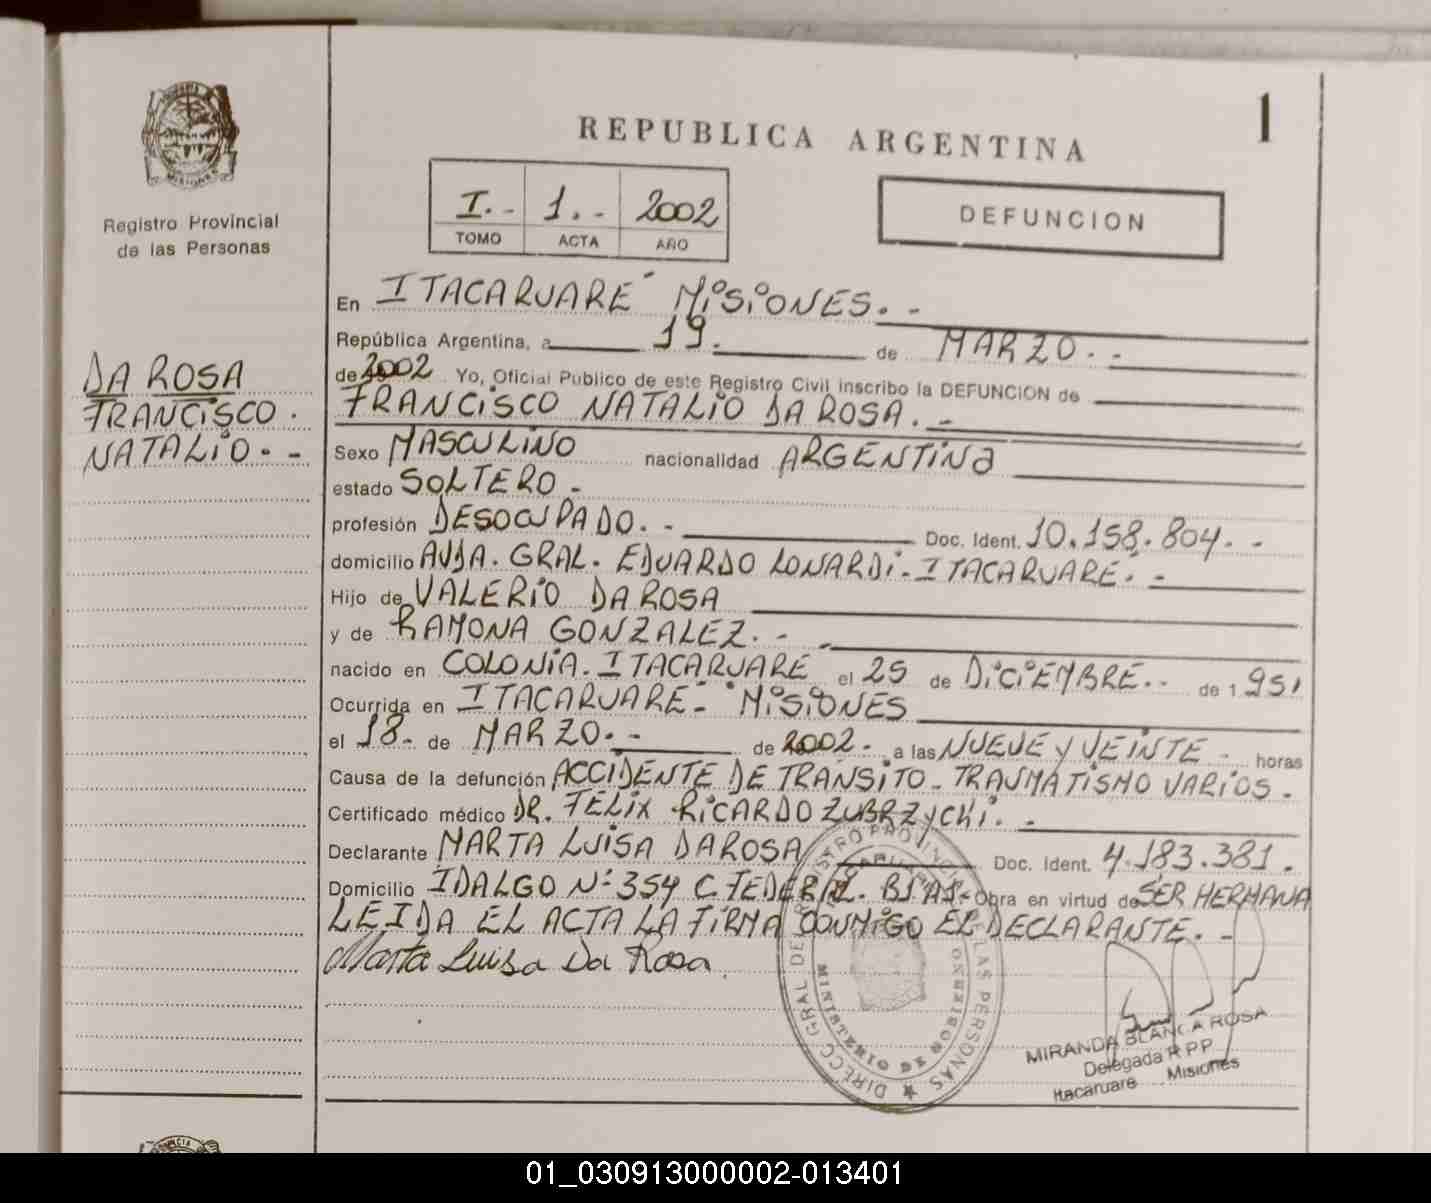 1
REPUBLICA ARGENTINA
MISIONES
Registro Provincial
de las Personas
I.- 1.- 2002
TOMO ACTA AÑO
DEFUNCION
DA ROSA
FRANCISCO.
NATALIO.-
En ITACARUARÉ MISIONES.-
República Argentina, a 19. de MARZO.-
de 2002 Yo, Oficial Publico de este Registro Civil inscribo la DEFUNCION de
FRANCISCO NATALIO DA ROSA.-
Sexo MASCULINO nacionalidad ARGENTINA
estado SOLTERO-
profesión DESOCUPADO.- Doc. Ident. 10.158.804.-
domicilio AVDA. GRAL. EDUARDO LONARDI-ITACARUARE.-
Hijo de VALERIO DA ROSA
y de RAMONA GONZALEZ.-
nacido en COLONIA. ITACARUARE el 25 de DICIEMBRE.- de 1951
Ocurrida en ITACARUARE- MISIONES
el 18- de MARZO.- de 2002. a las NUEVE y VEINTE- horas
Causa de la defunción ACCIDENTE DE TRANSITO- TRAUMATISMO VARIOS-
Certificado médico DR. FELIX RICARDO ZUBRZYCKI.-
Declarante MARTA LUISA DAROSA Doc. Ident. 4.183.381.
Domicilio IDALGO Nº 354 C.FEDERAL. BS AS- Obra en virtud de SER HERMANA
LEIDA EL ACTA LA FIRMA CONMIGO EL DECLARANTE.-
Marta Luisa Da Rosa
DIRECC. GRAL DE REGISTRO PROVINCIAL DE LAS PERSONAS
MINISTERIO DE GOBIERNO
MIRANDA BLANCA ROSA
Delegada R P P
Itacaruare Misiones
01_030913000002-013401